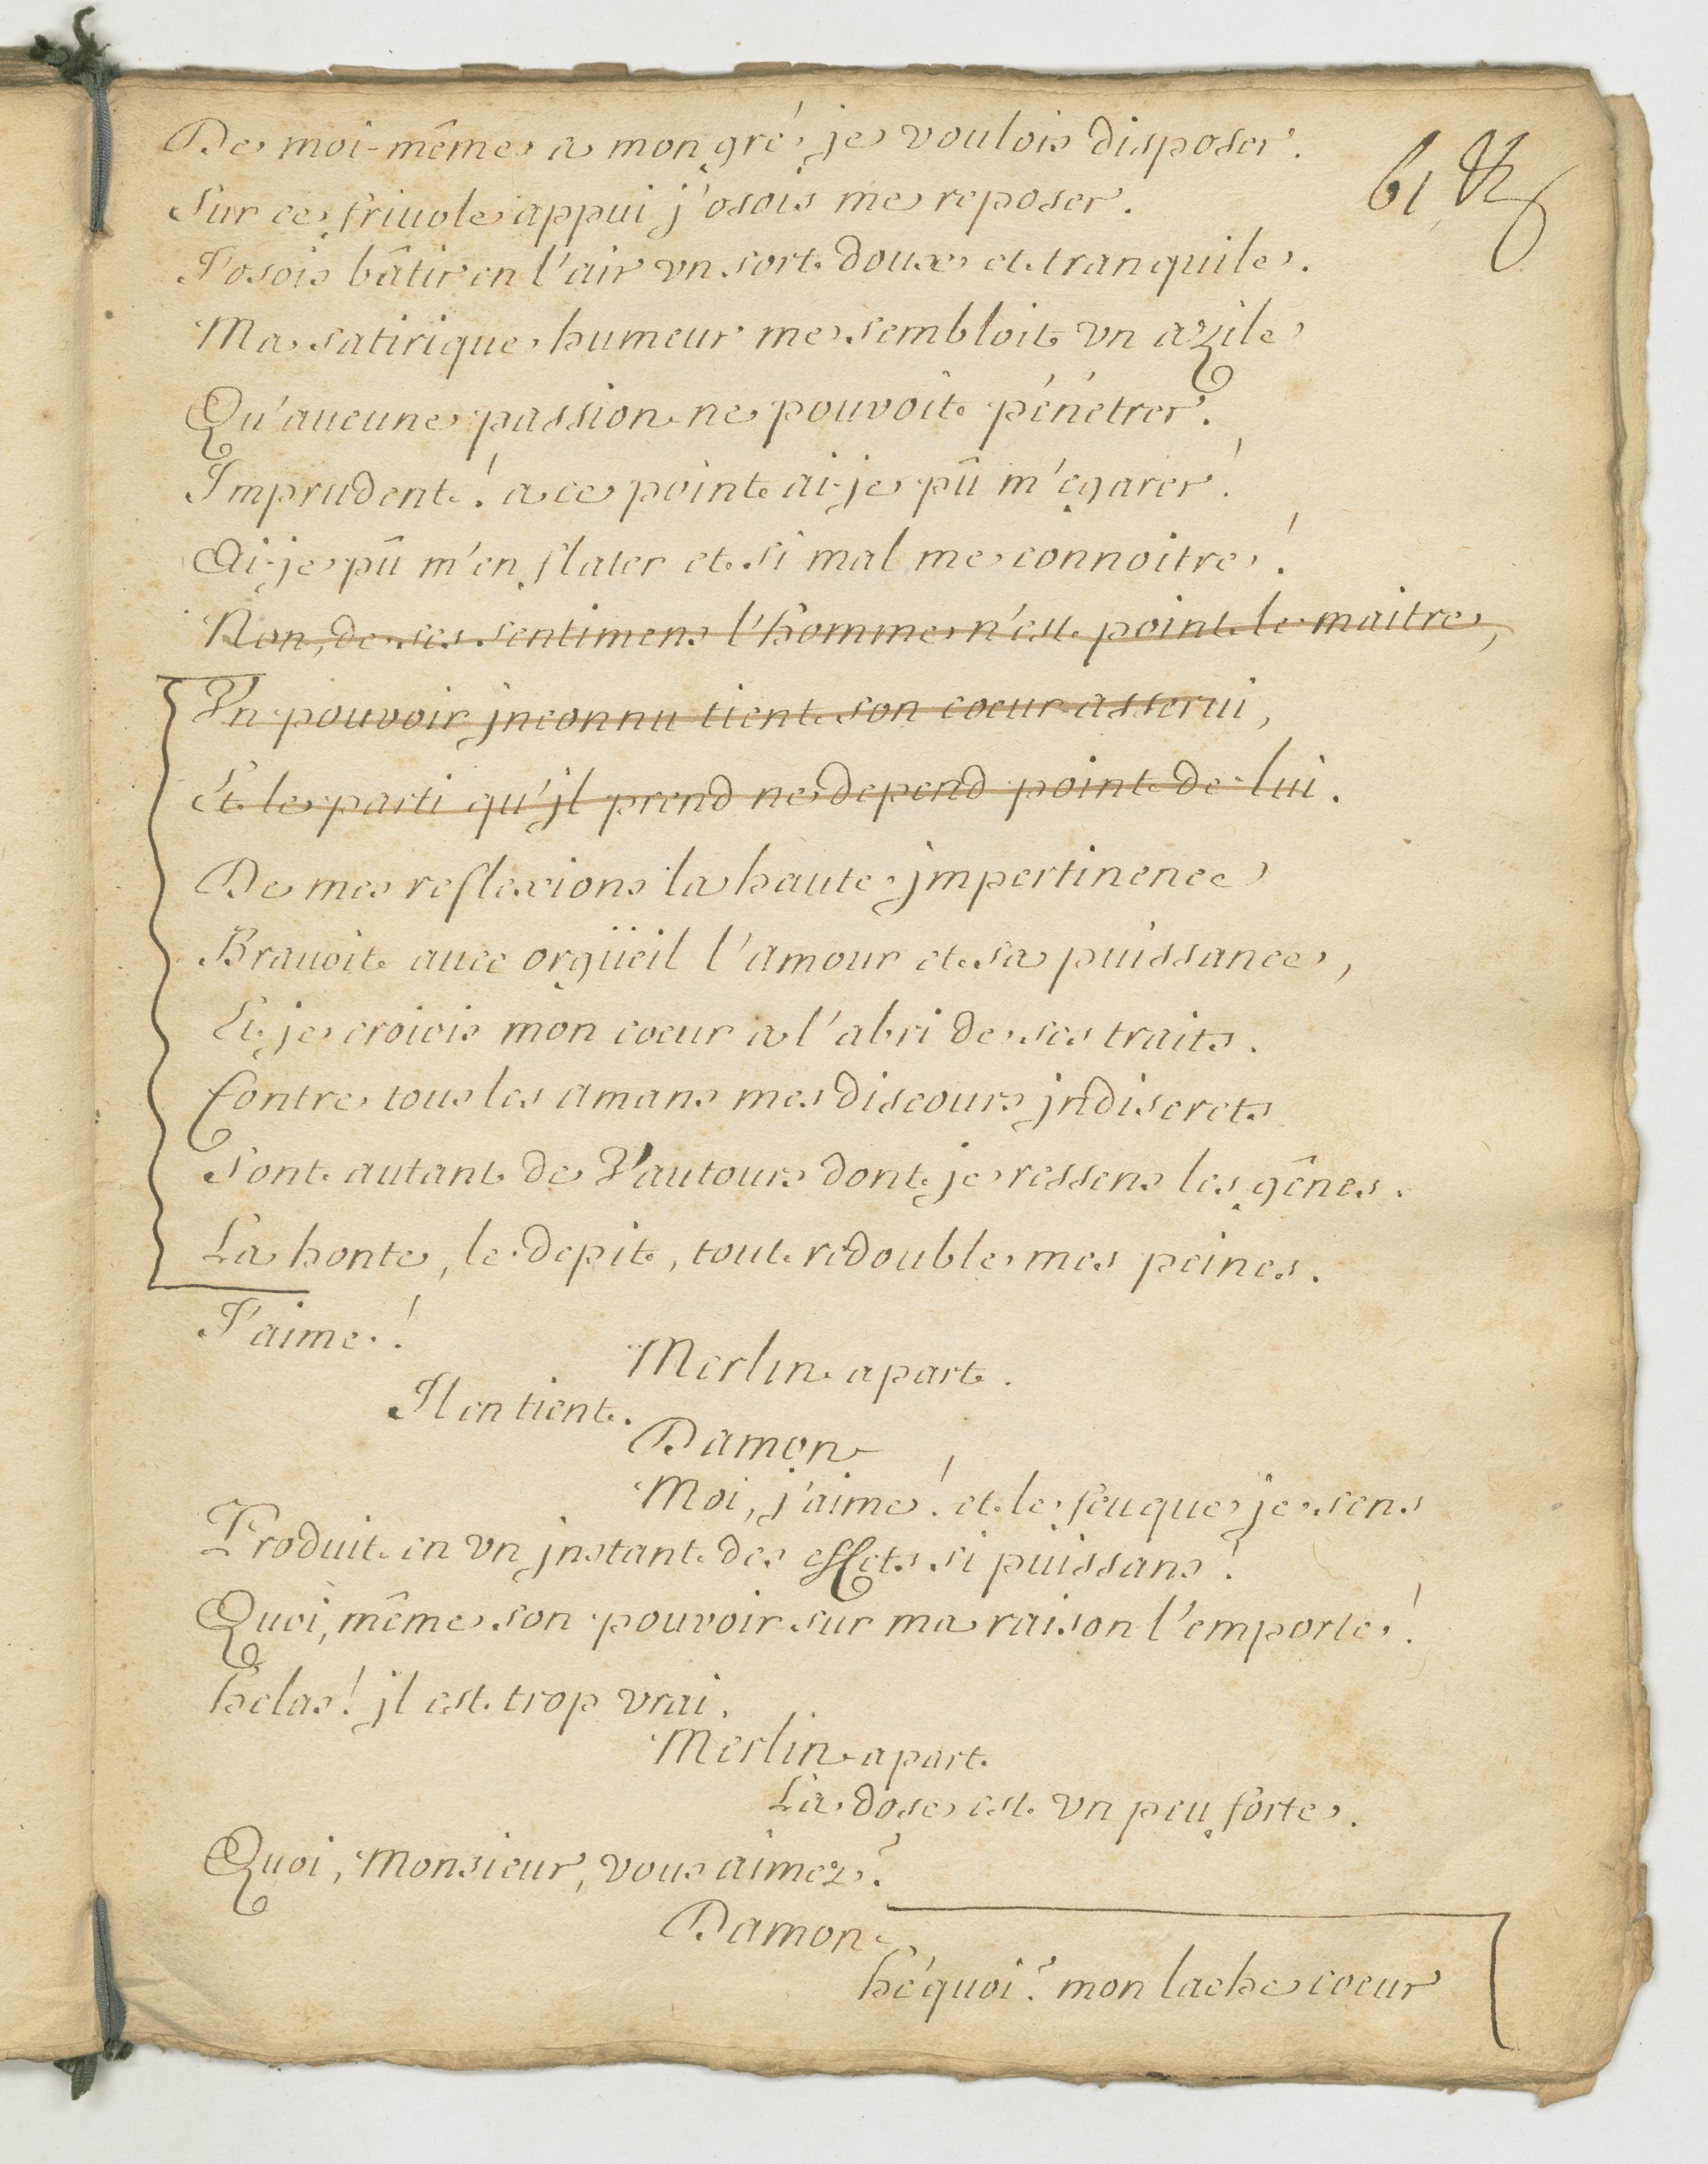 De moi-même a mon gré je voulois disposer.
61
Sur ce friuole appui j'osois me reposer.
J'osois bâtir en l'air vn sort doux et tranquile.
Ma satirique humeur me sembloit vn azile
Qu'aucune passion ne pouvoit pénétrer.
Imprudent! a ce point ai-je pû m'égarer!
Ai-je pû m'en flater et si mal me connoitre!
Non, de ses sentimens l'homme n'est point le maitre,
Vn pouvoir jnconnu tient son coeur asserui,
Et le parti qu'jl prend ne depend point de lui.
De mes reflexions la haute jmpertinence
Brauoit auec orgüeil l'amour et sa puissance,
Et je croiois mon coeur a l'abri de ses traits.
Contre tous les amans mes discours jndiscrets
Sont autant de Vautours dont je ressens les gênes.
La honte, le depit, tout redouble mes peines.
J'aime!
Merlin apart.
Il en tient.
Damon
Moi, j'aime! et le feu que je sens
Produit en vn jnstant des effets si puissans!
Quoi, même son pouvoir sur ma raison l'emporte!
helas! jl est trop vrai.
Merlin apart
La dose est vn peu forte.
Quoi, Monsieur, vous aimez?
Damon
hé quoi? mon lache coeur